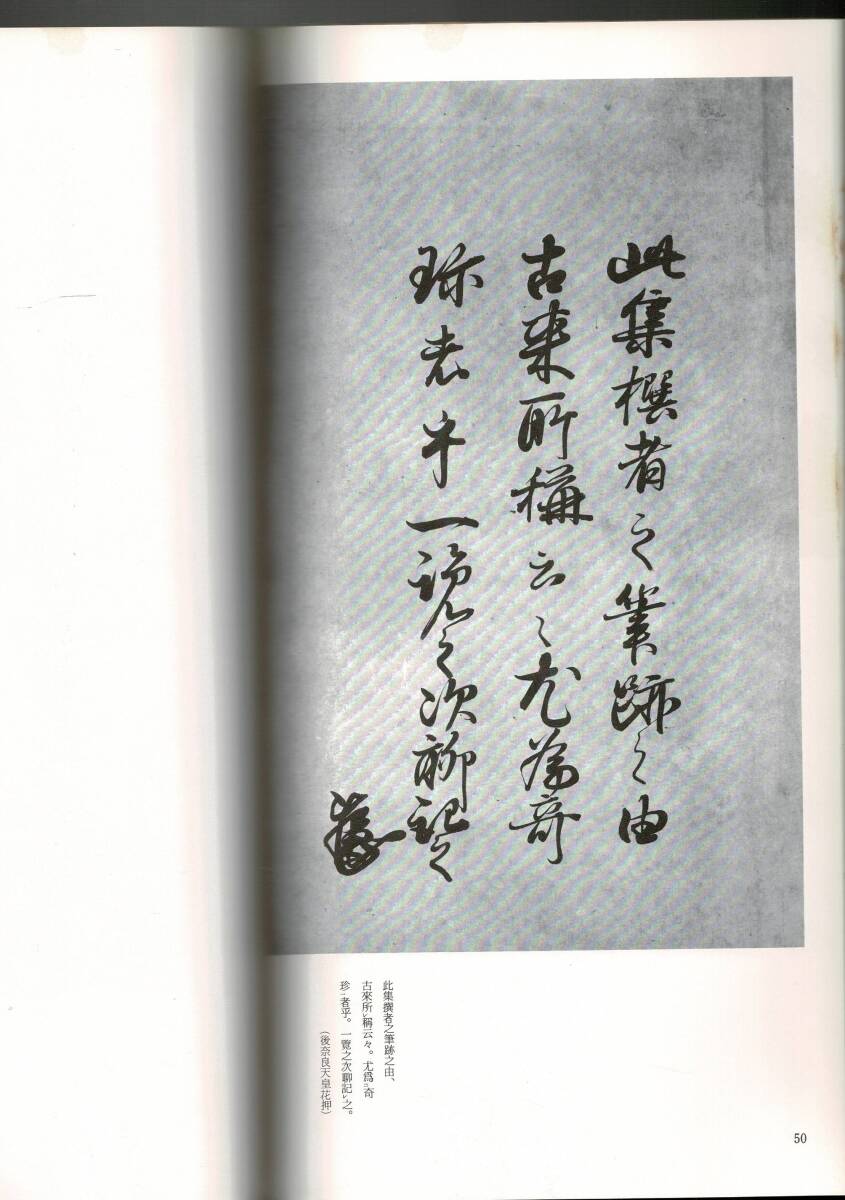 此集撰者之筆跡之由
古来所稱云々尤為奇
珎者乎一覧之次聊記之
此集撰者之筆跡之由、
古來所㆑稱云々。尤爲㆓奇
珍㆒者乎。一覽之次聊記㆑之。
（後奈良天皇花押）
50